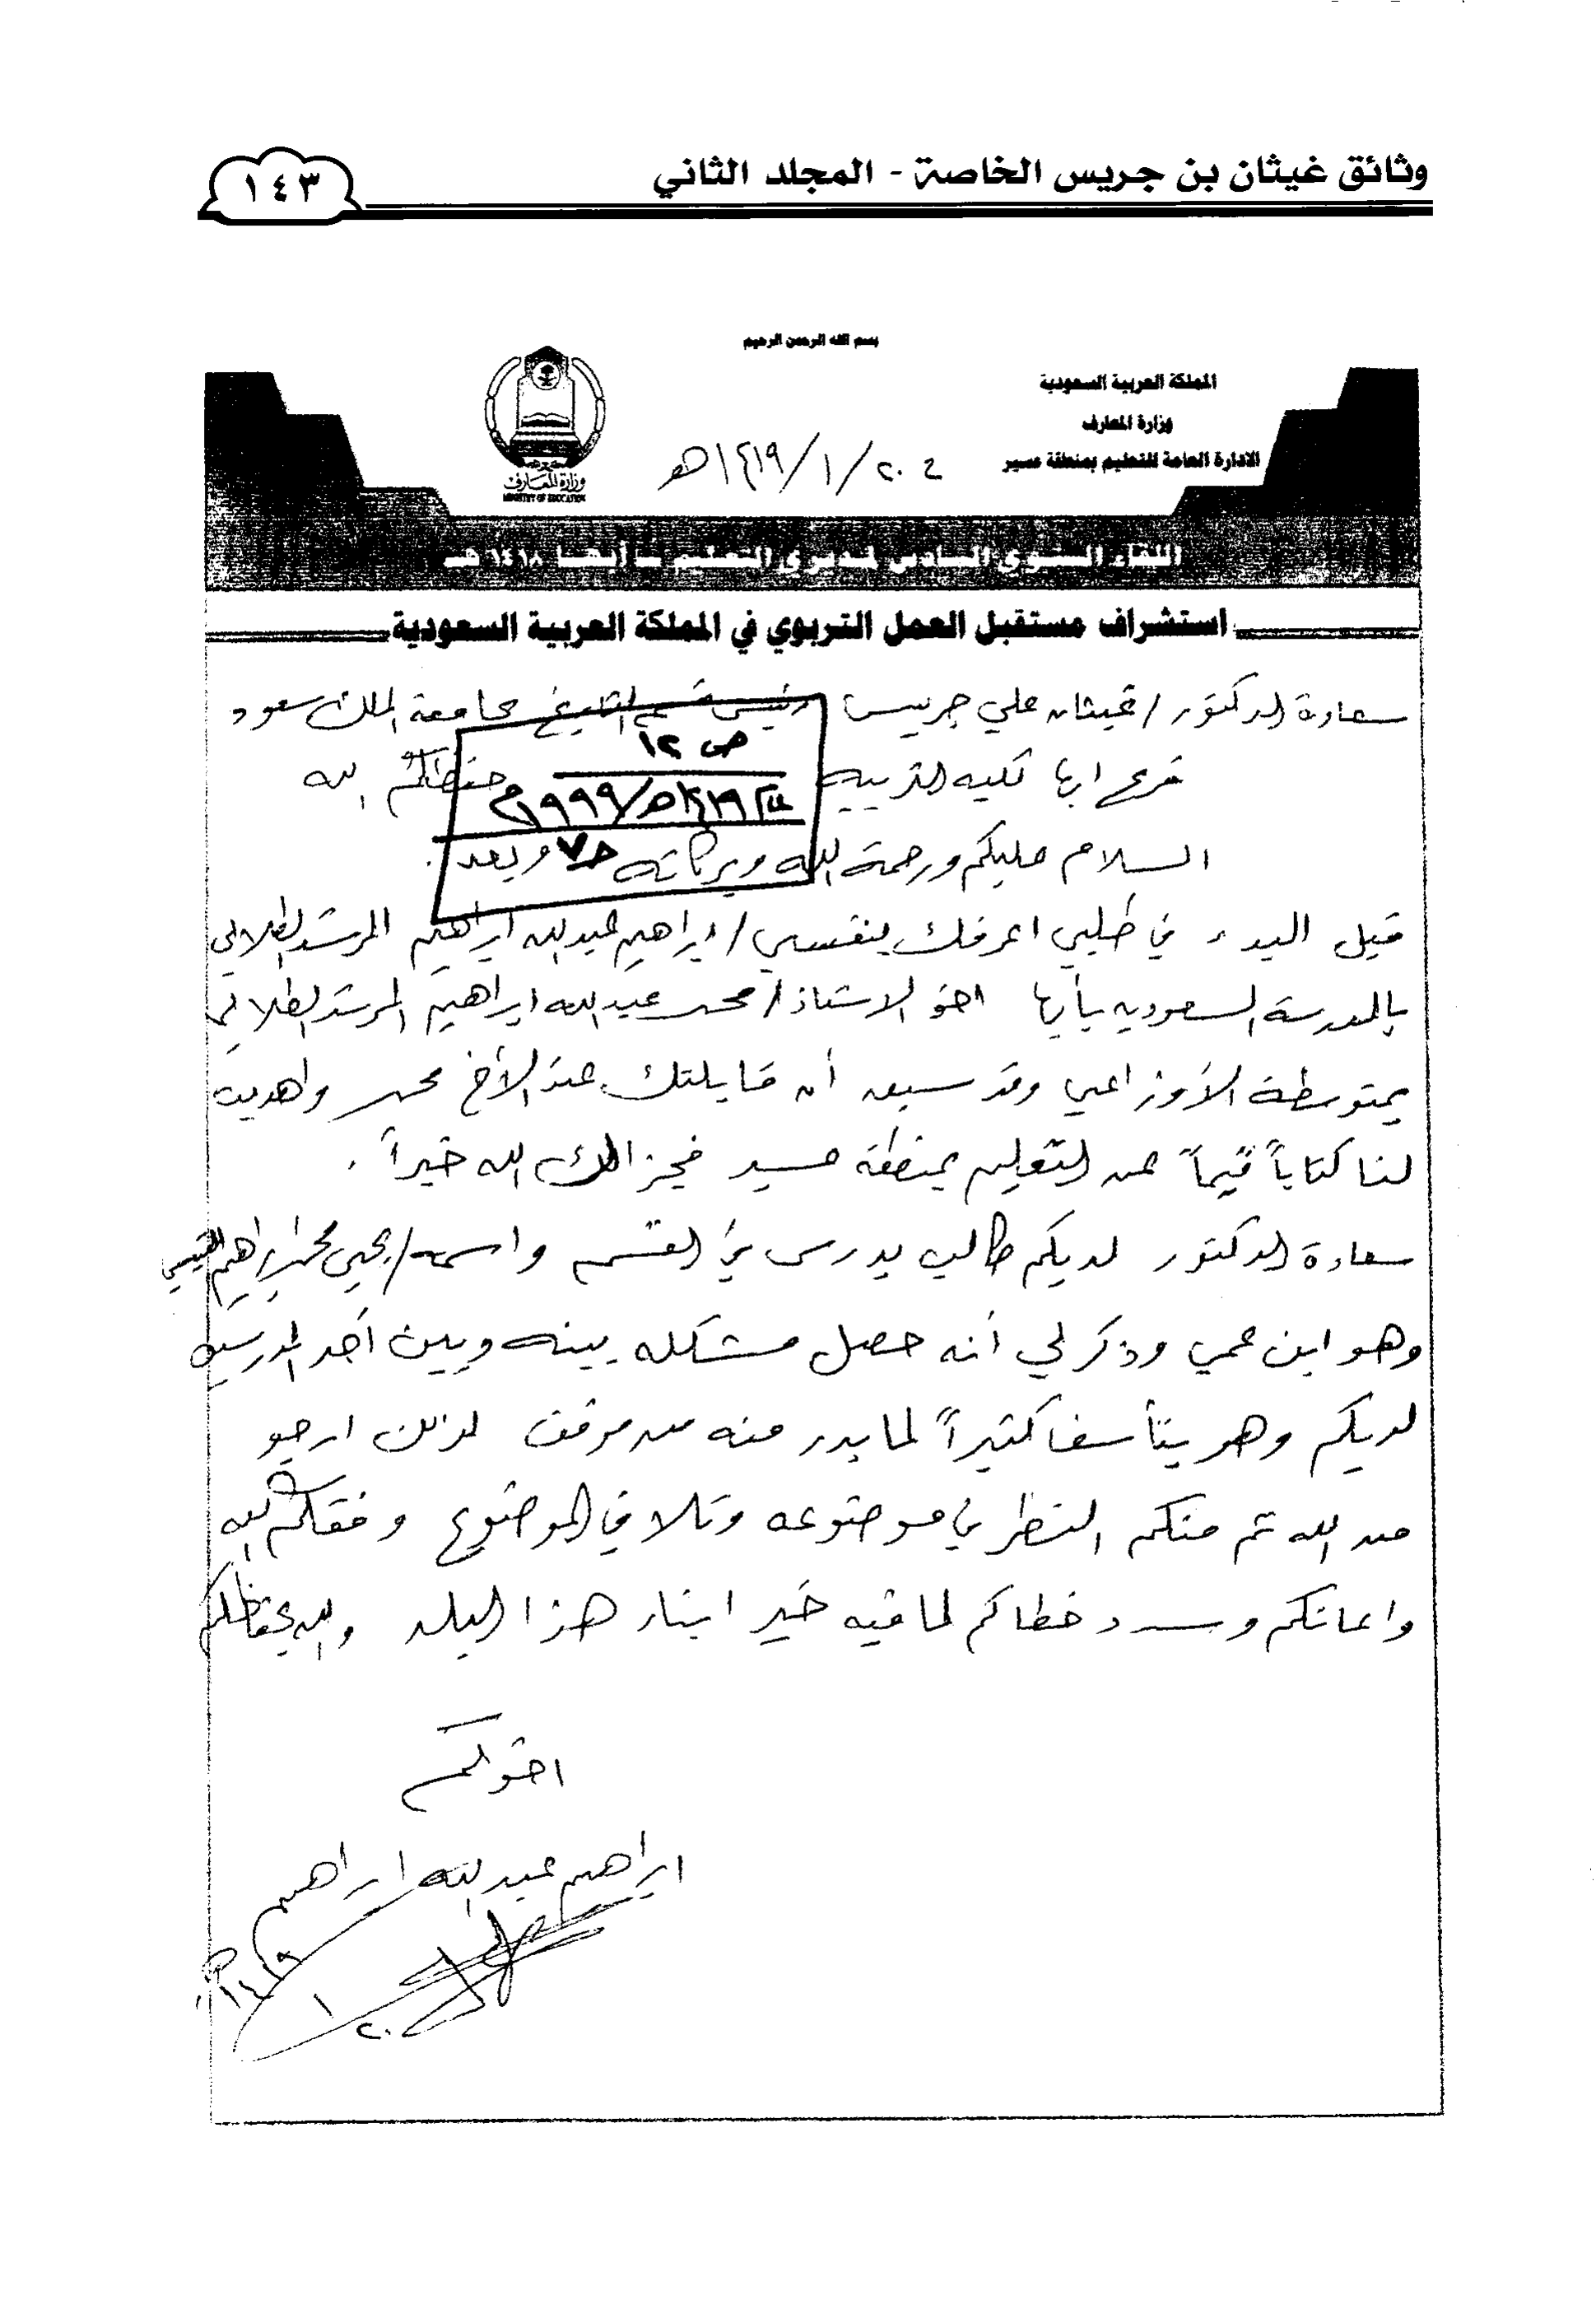 وثائق غيثان بن جريس الخاصة - المجلد الثاني
١٤٣
بسم الله الرحمن الرحيم
المملكة العربية السعودية
وزارة المعارف
الادارة العامة للتعليم بمنطقة عسير
وزارة المعارف
MINISTRY OF EDUCATION
١٤١٩/١/٢٠هـ
اللقاء السنوي السادس لمديري التعليم - أبها ١٤١٨هـ
استشراف مستقبل العمل التربوي في المملكة العربية السعودية
سعادة الدكتور / غيثان علي جريس رئيس قسم التاريخ بجامعة الملك سعود
فرع ابها كلية التربيه حفظكم الله
ص ١٢
١٤١٩هـ/١٩٩٩م
السلام عليكم ورحمة الله وبركاته وبعد
قبل البدء في طلبي اعرفك بنفسي / ابراهيم عبدالله ابراهيم المرشد الطلابي
بالمدرسة السعوديه بأبها اخو الاستاذ / محمد عبدالله ابراهيم المرشد الطلابي
بمتوسطة الأوزاعي وقد سبق أن قابلتك عند الأخ محمد واهديت
لنا كتاباً قيماً عن التعليم بمنطقة عسير فجزاك الله خيراً .
سعادة الدكتور لديكم طالب يدرس في القسم واسمه / يحيى محمد ابراهيم
وهو ابن عمي وذكر لي أنه حصل مشكله بينه وبين أحد المدرسين
لديكم وهو يتأسف كثيراً لما بدر منه من موقف لذلك ارجو
من الله ثم منكم النظر في موضوعه وتلافي الموضوع وفقكم الله
واعانكم وسدد خطاكم لما فيه خير ابناء هذا البلد والله يحفظكم
اخوكم
ابراهيم عبدالله ابراهيم
٢٠/١/١٤١٩هـ